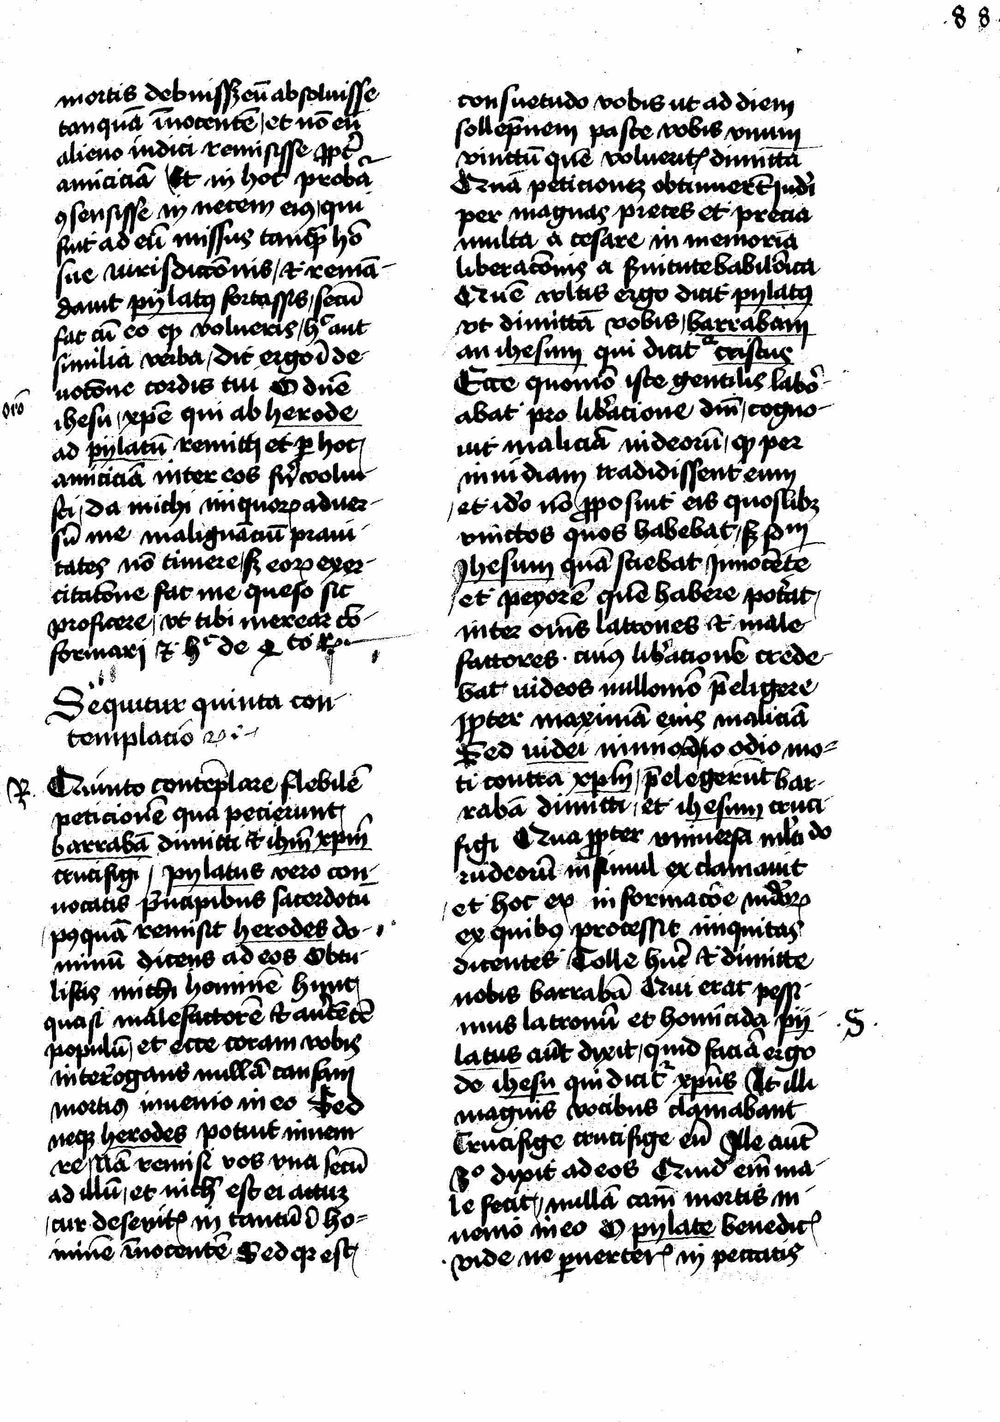 ·88·
mortis debuissꝫ eū absoluisse
tanquā īnocentē, et nō eū
alieno iudici remisisse ꝓpt̄
amiciciā Et in hoc probat̄
ꝯsensisse in necem eiꝰ, qui
fuit ad eū missus tanq̄ hō
sue iurisdicc̄onis, et reman-
dauit pylatꝰ fortassis, secū
fac cū eo qꝫ volueris, hͨ aut
similia verba, Dic ergo ī de-
uoc̄one cordis tui O dn̄e
orō
ihesu, xp̄e qui ab herode
ad pylatū remitti et ꝑ hoc,
amiciciā inter eos fieri volui-
sti, da michi iniquoꝝ aduer-
sū me malignāciū praui
tates nō timere, sꝫ eoꝝ exer-
citac̄one fac me queso sic
proficere, vt tibi merear cō-
formari
Sequitur quinta con
templacio
R. Quinto contēplare flebilē
peticionē qua pecierunt,
barrabā dimitti et ihm̄ xp̄m
crucifigi, pylatus vero con-
uocatis pͥncipibus sacerdotū
, pꝰquā remisit herodes do-
minū dicens ad eos Obtu-
listis michi hominē hunc,
quasi malefactorē et au̾tētē
populū, et ecce coram vobis
interrogans nullā causam
mortis inuenio in eo Sed
neqꝫ herodes potuit inueni-
re Nā remisi vos vna secū
ad illū, et nichͥ est ei actuꝫ
, cur deseuitꝭ in tantū ī ho-
minē īnocentē Sed qꝛ est,
consuetudo vobis ut ad diem
sollēpnem pasce vobis vnum
vinctū quē volueritꝭ dimittā
Quā peticionē obtinuerūt iudei
per magnas preces et precia
multa a cesare in memoria
liberac̄onis a s̾uitute babilōica
Quē vltis ergo dicit pylatꝰ
vt dimittā vobis, barrabam
an ihesum qui dicitᵣ cristus
Ecce quomō iste gentilis labo-
rabat pro lib̾acione dn̄i, cogno-
uit maliciā iudeorū, qꝫ per
inuidiam tradidissent eum
, et ideo nō ꝓposuit eis quoslibꝫ
vinctos quos habebat, sꝫ
Jhesum quā sciebat Jnnocētē
, et peyorē quē habere pot̾at,
inter om̄s latrones et male
factores . cuiꝰ lib̾acionē crede-
bat iudeos nullomō p̄eligere
ꝓpter maximā eius maliciā
Sed iudei nimio odio mo-
ti contra xpm̄, p̄elegerūt bar-
rabā dimitti, et ihesum cruci
figi Qua ꝓpter vniuersa mltͥdo
iudeorū insimul exclamauit
, et hoc ex informacōe iudeoꝝ
ex quibꝰ processit iniquitas
dicentes Tolle hūc et dimitte
nobis barrabā Qui erat pessi-
mus latronū et homicida py- ·S·
latus aūt dixit, quid faciā ergo
de ihesu qui dicitᵣ xp̄us At illi
magnis vocibus clamabant
Crucifige crucifige eū Jlle aūt
3ͦ dixit ad eos Quid em̄ ma-
le fecit, nullā cam̄ mortis in-
uenio in eo O pylate benedicꝭ
· vide ne ꝑuerterꝭ in peccatis